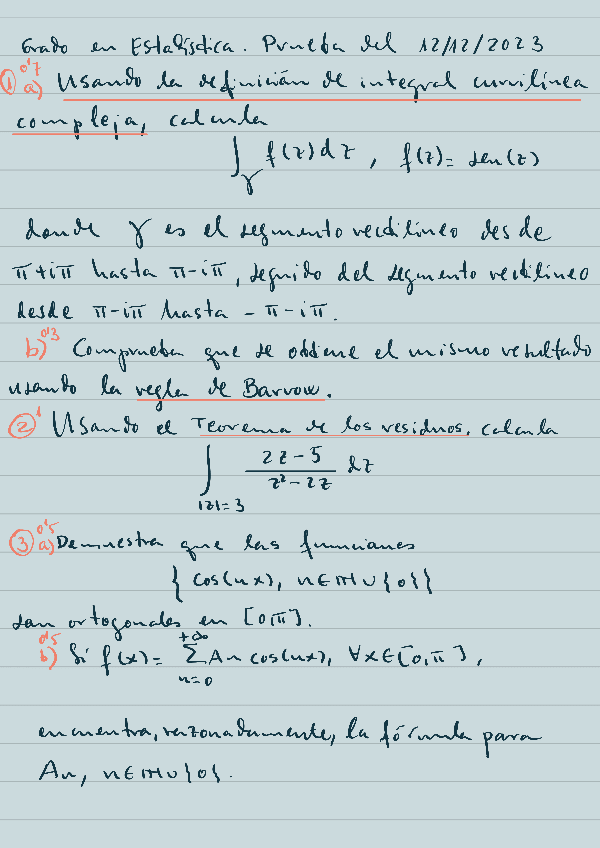 Grado en Estadística. Prueba del 12/12/2023
① 0'7 a) Usando la definición de integral curvilínea
compleja, calcula
∫_γ f(z)dz, f(z)= sen(z)
donde γ es el segmento rectilíneo desde
π+iπ hasta π-iπ, seguido del segmento rectilíneo
desde π-iπ hasta -π-iπ.
b) 0'3 Comprueba que se obtiene el mismo resultado
usando la regla de Barrow.
② 1 Usando el Teorema de los residuos, calcula
∫_{|z|=3} (2z-5)/(z²-2z) dz
③ 0'5 a) Demuestra que las funciones
{cos(nx), n∈ℕ∪{0}}
son ortogonales en [0,π].
0'5 b) Si f(x)= Σ_{n=0}^{+∞} An cos(nx), ∀x∈[0,π],
encuentra, razonadamente, la fórmula para
An, n∈ℕ∪{0}.